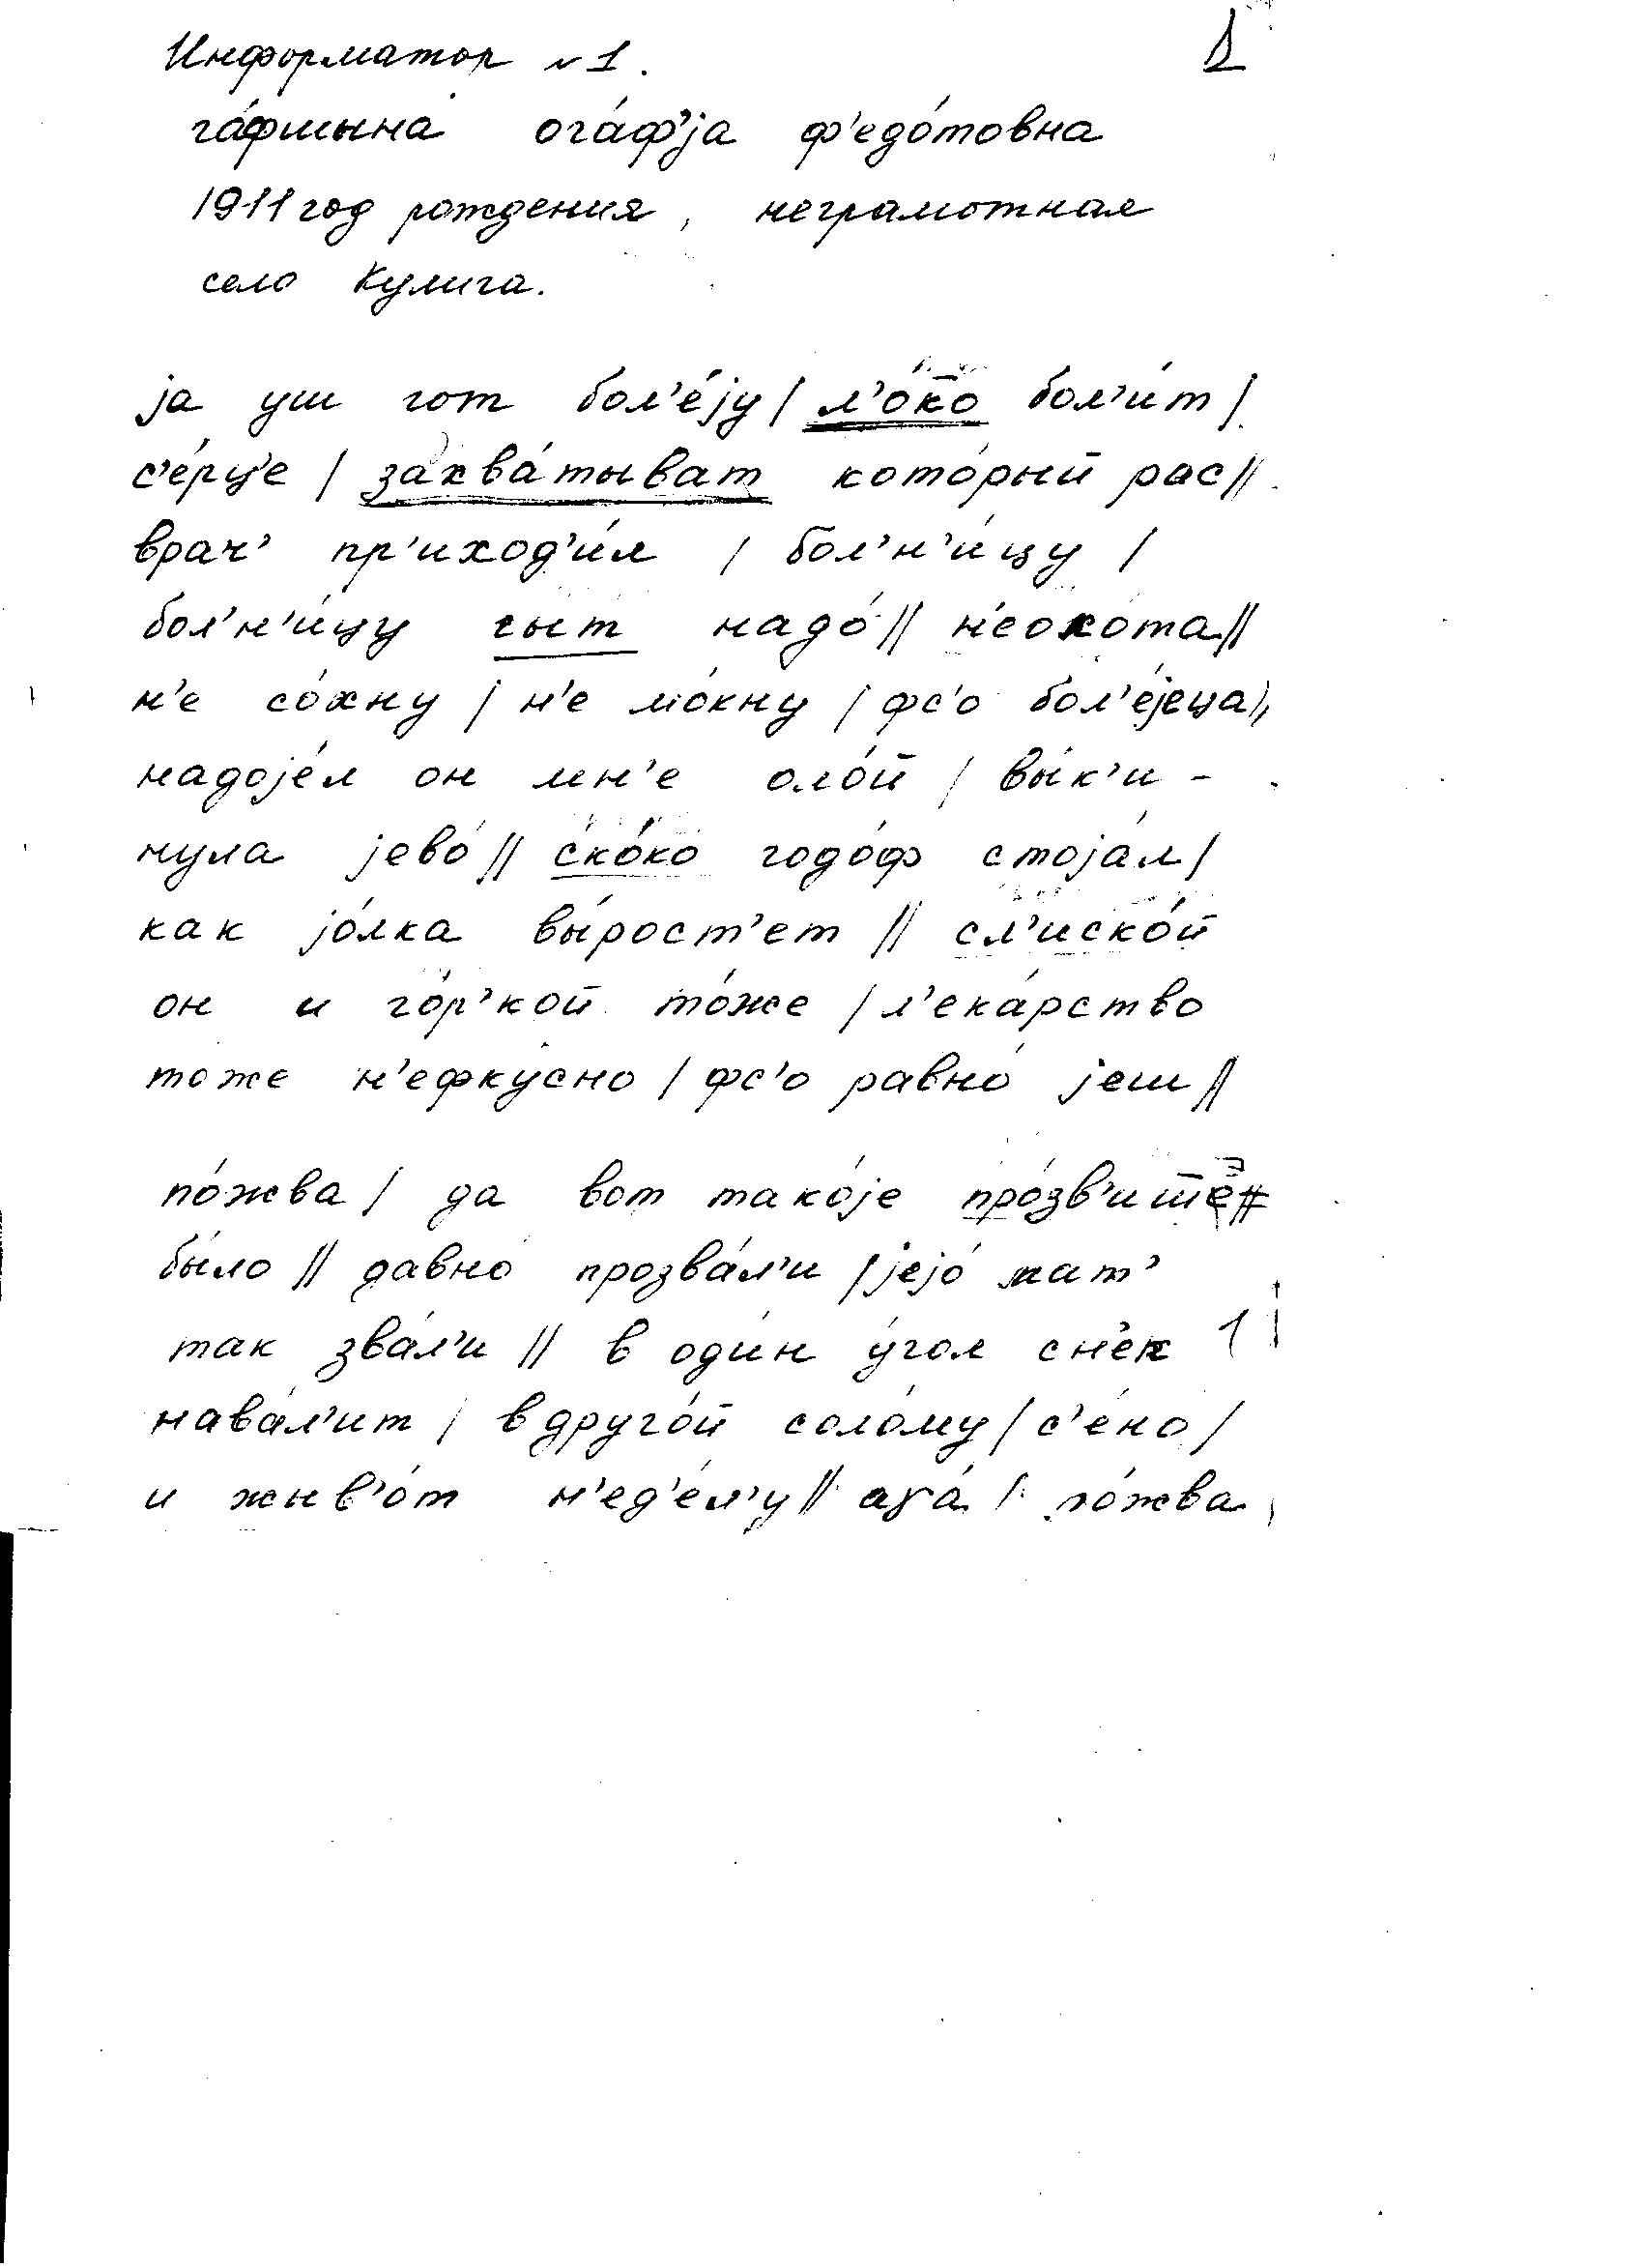 Информатор №1.
1
га́фшына ога́ф'jа ф'едо́товна
1911 год рождения, неграмотная
село Кулига.
jа уш гот бол'е́jу / л'о́ко бол'и́т /
с'е́рц'е / захва́тыват кото́рый рас //
врач' пр'иход'и́л / бол'н'и́цу /
бол'н'и́цу гыт надо́ // н'еохо́та //
н'е со́хну / н'е мо́кну / фс'о бол'е́jеца //
надоjе́л он мн'е оло́й / вы́к'и -
нула jево́ // ско́ко годо́ф стоjа́л /
как jо́лка вы́рост'ет // сл'иско́й
он и го́р'кой то́же / л'ека́рство
тоже н'ефку́сно / фс'о равно́ jеш //
по́жва / да вот тако́jе про́зв'ише
бы́ло // давно́ прозва́л'и / jеjо́ мат'
так зва́л'и // в оди́н у́гол сн'ек
нава́л'ит / в друго́й соло́му / с'е́но /
и жыв'о́т н'ед'е́л'у // аγа́ / по́жва